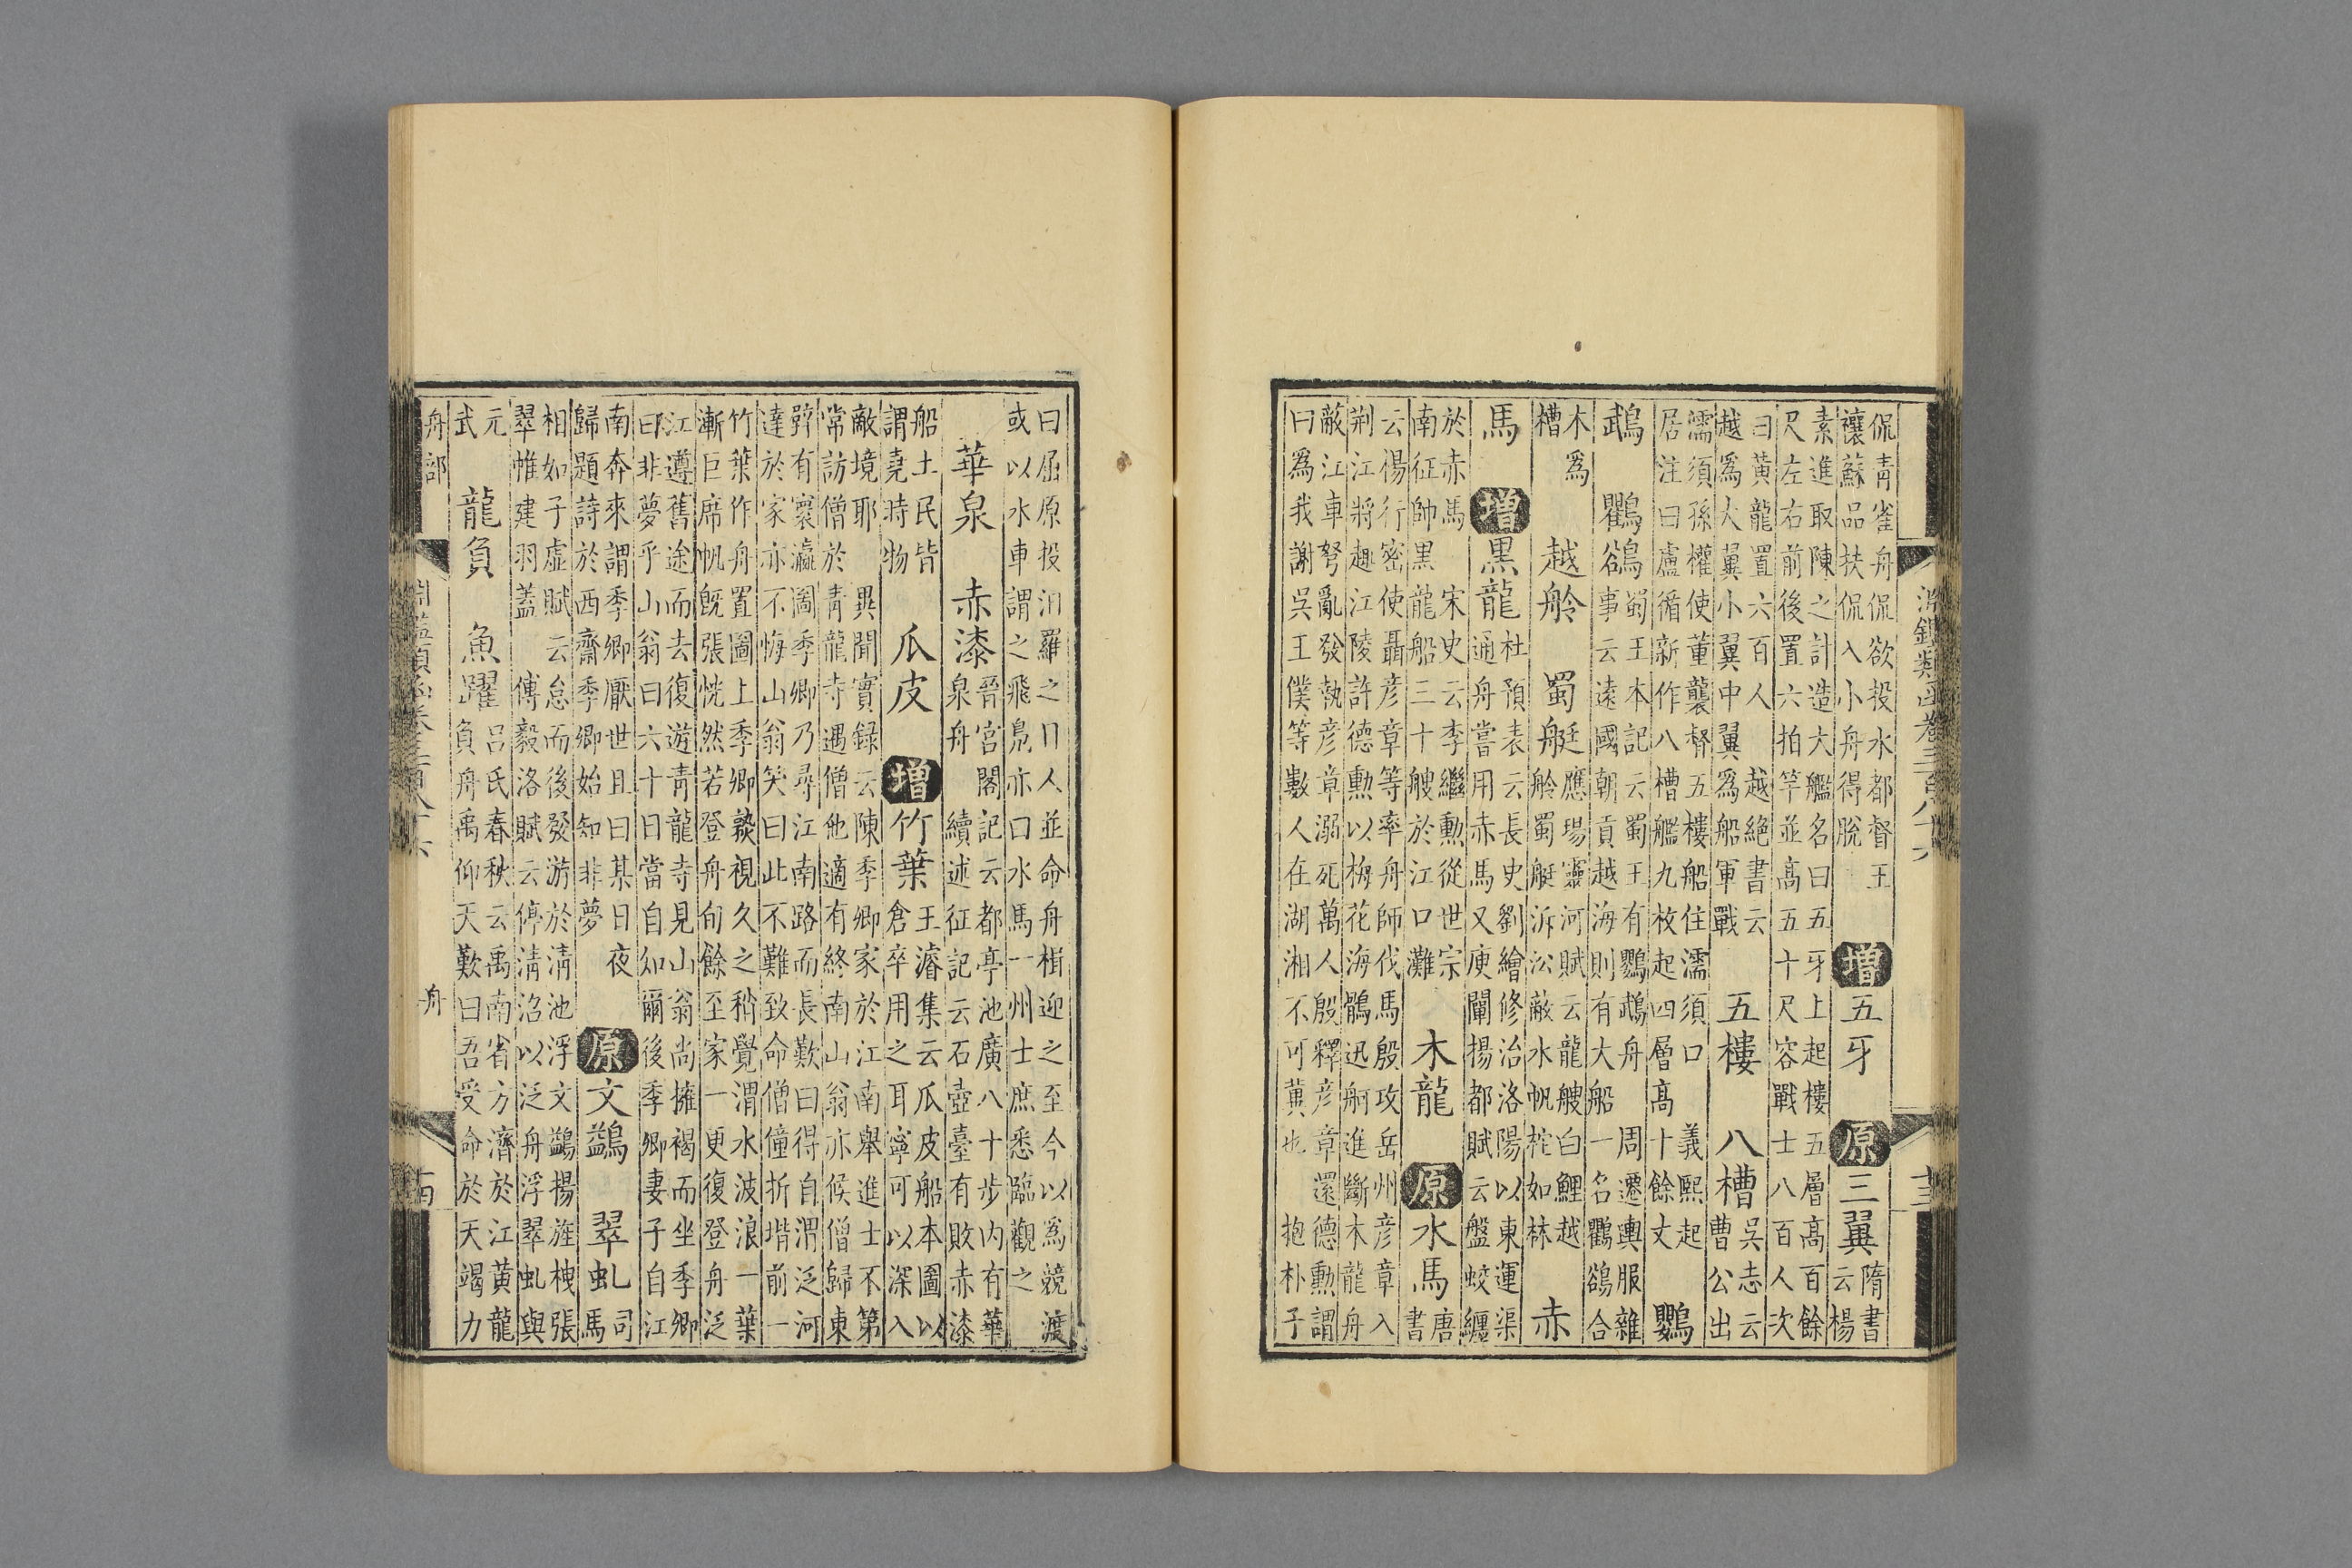 侃青雀舟侃欲投水都督王
禳蘇品扶侃入小舟得脫
增五牙 原三翼
隋書
云楊
素進取陳之計造大艦名曰五牙上起樓五層高百餘
尺左右前後置六拍竿並高五十尺容戰士八百人次
曰黃龍置六百人 越絕書云
越爲大翼小翼中翼爲船軍戰
五樓 八槽
吳志云
曹公出
濡須孫權使董襲督五樓船住濡須口 義熙起
居注曰盧循新作八槽艦九枚起四層高十餘丈
鸚
鵡 鸜鵒
蜀王本記云蜀王有鸚鵡舟 周遷輿服雜
事云遠國朝貢越海則有大船一名鸜鵒合
木爲
槽
越舲 蜀艇
應瑒靈河賦云龍艘白鯉越
舲蜀艇泝㳂敵水帆柁如林
赤
馬 增黑龍
杜預表云長史劉繪修治洛陽以東運渠
通舟嘗用赤馬又庾闡揚都賦云盤蛟纏
於赤馬 宋史云李繼勳從世宗
南征帥黑龍船三十艘於江口灘
木龍 原水馬
唐
書
云傷行密使聶彥章等率舟師伐馬殷攻岳州彥章入
荆江將趣江陵許德勳以梅花海鶻迅舸進斷木龍舟
敵江車弩亂發執彥章溺死萬人殷釋彥章還德勳謂
曰爲我謝吳王僕等數人在湖湘不可冀也 抱朴子
曰屈原投汨羅之日人並命舟楫迎之至今以爲競渡
或以水車謂之飛鳧亦曰水馬一州士庶悉臨觀之
華泉 赤漆
晉宮閣記云都亭池廣八十步内有華
泉舟 續述征記云石壺臺有敗赤漆
船土民皆
謂堯時物
瓜皮 增竹葉
王濬集云瓜皮船本圖以
倉卒用之耳寧可以深入
敵境耶 異聞實録云陳季卿家於江南舉進士不第
常訪僧於青龍寺遇僧他適有終南山翁亦候僧歸東
有寰瀛圖季卿乃尋江南路而長歎曰得自渭泛河
達於家亦不悔山翁笑曰此不難致命僧僮折堦前一
竹葉作舟置圖上季卿熟視久之稍覺渭水波浪一葉
漸巨席帆旣張恍然若登舟旬餘至家一更復登舟泛
江遵舊途而去復遊青龍寺見山翁尚擁褐而坐季卿
曰非夢乎山翁曰六十日當自知爾後季卿妻子自江
南奔來謂季卿厭世且曰某日夜
歸題詩於西齋季卿始知非夢
原文鷁 翠虬
司
馬
相如子虛賦云怠而後發游於淸池浮文鷁揚旌栧張
翠帷建羽蓋 傅毅洛賦云停淸沼以泛舟浮翠虬與
元
武
龍負 魚躍
呂氏春秋云禹南省方濟於江黃龍
負舟禹仰天歎曰吾受命於天竭力
舟部
舟